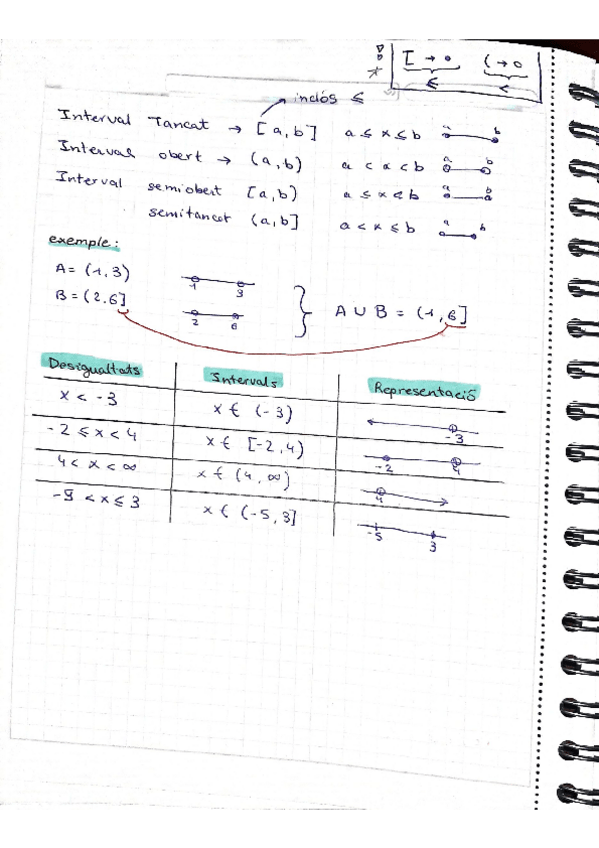 [ → o   ( → o
≤   <
inclós ≤
Interval Tancat → [a,b]   a ≤ x ≤ b   a b
Interval obert → (a,b)   a < x < b   a b
Interval semiobert [a,b)   a ≤ x < b   a b
semitancat (a,b]   a < x ≤ b   a b
exemple:
A = (1,3)   1 3
B = (2,6]   2 6   A ∪ B = (1,6]
Desigualtats   Intervals   Representació
x < -3   x ∈ (-3)   -3
-2 ≤ x < 4   x ∈ [-2,4)   -2 4
4 < x < ∞   x ∈ (4,∞)   4
-9 < x ≤ 3   x ∈ (-5,3]   -5 3